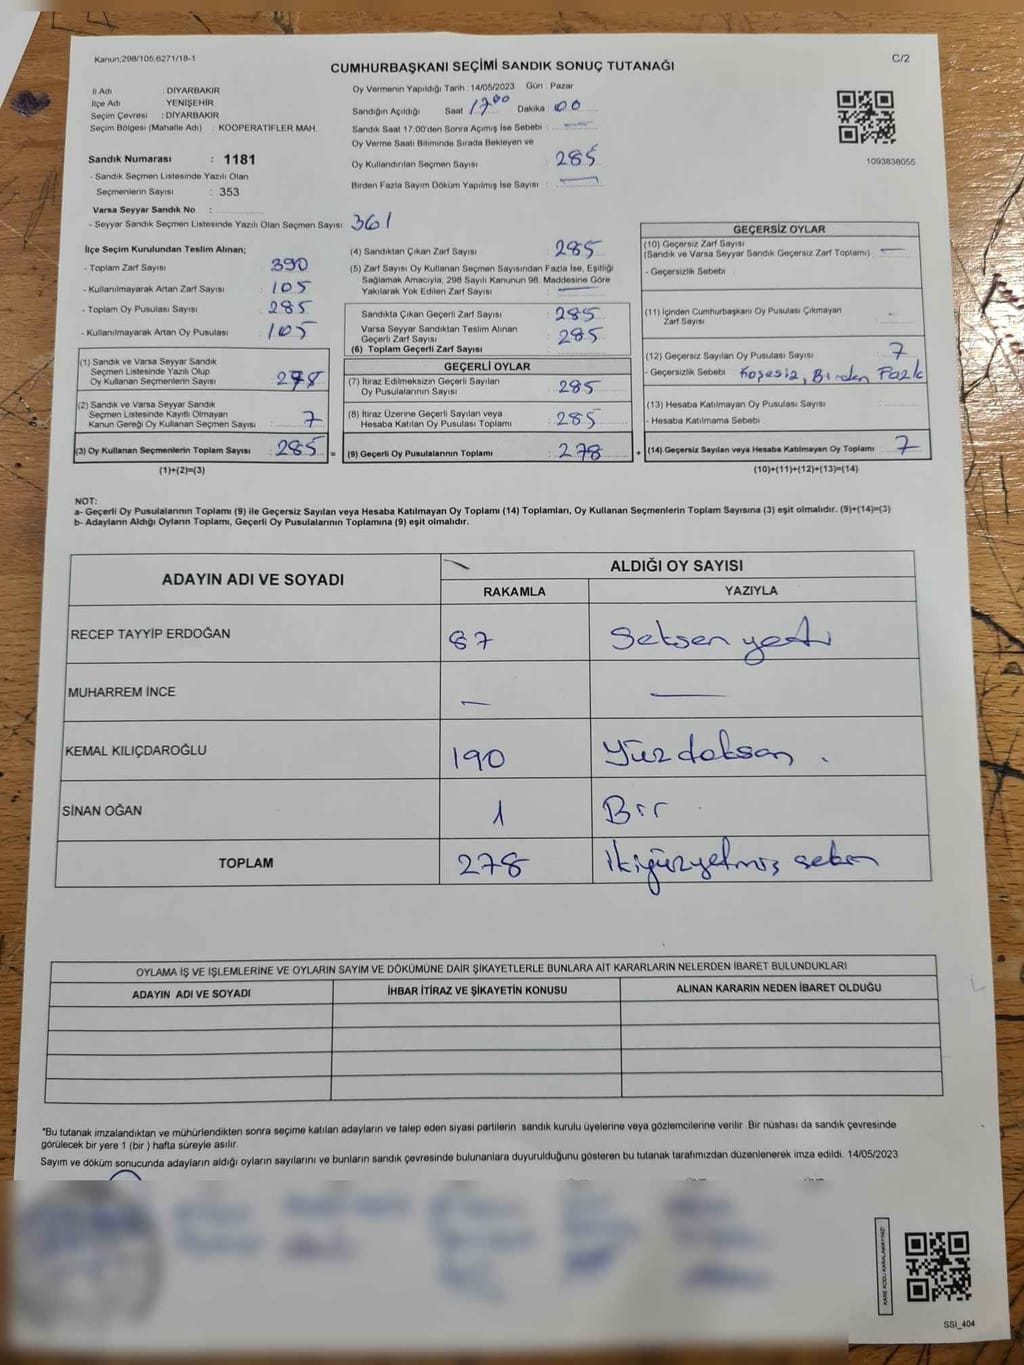 Kanun;298/105;6271/18-1
C/2
CUMHURBAŞKANI SEÇİMİ SANDIK SONUÇ TUTANAĞI
İl Adı : DİYARBAKIR
İlçe Adı : YENİŞEHİR
Seçim Çevresi : DİYARBAKIR
Seçim Bölgesi (Mahalle Adı) : KOOPERATİFLER MAH.
Sandık Numarası : 1181
- Sandık Seçmen Listesinde Yazılı Olan
Seçmenlerin Sayısı : 353
Varsa Seyyar Sandık No :
- Seyyar Sandık Seçmen Listesinde Yazılı Olan Seçmen Sayısı: 361
Oy Vermenin Yapıldığı Tarih : 14/05/2023 Gün : Pazar
Sandığın Açıldığı Saat 17.00 Dakika : 00
Sandık Saat 17.00'den Sonra Açımış İse Sebebi : —
Oy Verme Saati Bitiminde Sırada Bekleyen ve
Oy Kullandırılan Seçmen Sayısı : 285
Birden Fazla Sayım Döküm Yapılmış İse Sayısı : —
1093838055
İlçe Seçim Kurulundan Teslim Alınan;
- Toplam Zarf Sayısı : 390
- Kullanılmayarak Artan Zarf Sayısı : 105
- Toplam Oy Pusulası Sayısı : 285
- Kullanılmayarak Artan Oy Pusulası : 105
(1) Sandık ve Varsa Seyyar Sandık
Seçmen Listesinde Yazılı Olup
Oy Kullanan Seçmenlerin Sayısı : 278
(2) Sandık ve Varsa Seyyar Sandık
Seçmen Listesinde Kayıtlı Olmayan
Kanun Gereği Oy Kullanan Seçmen Sayısı : 7
(3) Oy Kullanan Seçmenlerin Toplam Sayısı : 285 =
(1)+(2)=(3)
(4) Sandıktan Çıkan Zarf Sayısı : 285
(5) Zarf Sayısı Oy Kullanan Seçmen Sayısından Fazla İse, Eşitliği
Sağlamak Amacıyla; 298 Sayılı Kanunun 98. Maddesine Göre
Yakılarak Yok Edilen Zarf Sayısı : —
Sandıkta Çıkan Geçerli Zarf Sayısı : 285
Varsa Seyyar Sandıktan Teslim Alınan
Geçerli Zarf Sayısı : 285
(6) Toplam Geçerli Zarf Sayısı :
GEÇERLİ OYLAR
(7) İtiraz Edilmeksizin Geçerli Sayılan
Oy Pusulalarının Sayısı : 285
(8) İtiraz Üzerine Geçerli Sayılan veya
Hesaba Katılan Oy Pusulası Toplamı : 285
(9) Geçerli Oy Pusulalarının Toplamı : 278 +
GEÇERSİZ OYLAR
(10) Geçersiz Zarf Sayısı
(Sandık ve Varsa Seyyar Sandık Geçersiz Zarf Toplamı) : —
- Geçersizlik Sebebi :
(11) İçinden Cumhurbaşkanı Oy Pusulası Çıkmayan
Zarf Sayısı : -
(12) Geçersiz Sayılan Oy Pusulası Sayısı : 7
- Geçersizlik Sebebi : Birden
(13) Hesaba Katılmayan Oy Pusulası Sayısı :
- Hesaba Katılmama Sebebi :
(14) Geçersiz Sayılan veya Hesaba Katılmayan Oy Toplamı : 7
(10)+(11)+(12)+(13)=(14)
NOT:
a- Geçerli Oy Pusulalarının Toplamı (9) ile Geçersiz Sayılan veya Hesaba Katılmayan Oy Toplamı (14) Toplamları, Oy Kullanan Seçmenlerin Toplam Sayısına (3) eşit olmalıdır. (9)+(14)=(3)
b- Adayların Aldığı Oyların Toplamı, Geçerli Oy Pusulalarının Toplamına (9) eşit olmalıdır.
ADAYIN ADI VE SOYADI
ALDIĞI OY SAYISI
RAKAMLA YAZIYLA
RECEP TAYYİP ERDOĞAN 87 Seksen yedi
MUHARREM İNCE — —
KEMAL KILIÇDAROĞLU 190 Yüzdoksan .
SİNAN OĞAN 1 Bir
TOPLAM 278 ikiyüzyetmiş seksen
OYLAMA İŞ VE İŞLEMLERİNE VE OYLARIN SAYIM VE DÖKÜMÜNE DAİR ŞİKAYETLERLE BUNLARA AİT KARARLARIN NELERDEN İBARET BULUNDUKLARI
ADAYIN ADI VE SOYADI İHBAR İTİRAZ VE ŞİKAYETİN KONUSU ALINAN KARARIN NEDEN İBARET OLDUĞU
"Bu tutanak imzalandıktan ve mühürlendikten sonra seçime katılan adayların ve talep eden siyasi partilerin sandık kurulu üyelerine veya gözlemcilerine verilir. Bir nüshası da sandık çevresinde
görülecek bir yere 1 (bir ) hafta süreyle asılır.
Sayım ve döküm sonucunda adayların aldığı oyların sayılarını ve bunların sandık çevresinde bulunanlara duyurulduğunu gösteren bu tutanak tarafımızdan düzenlenerek imza edildi. 14/05/2023
KARE KODU KARALAMAYINIZ!
SSİ_404